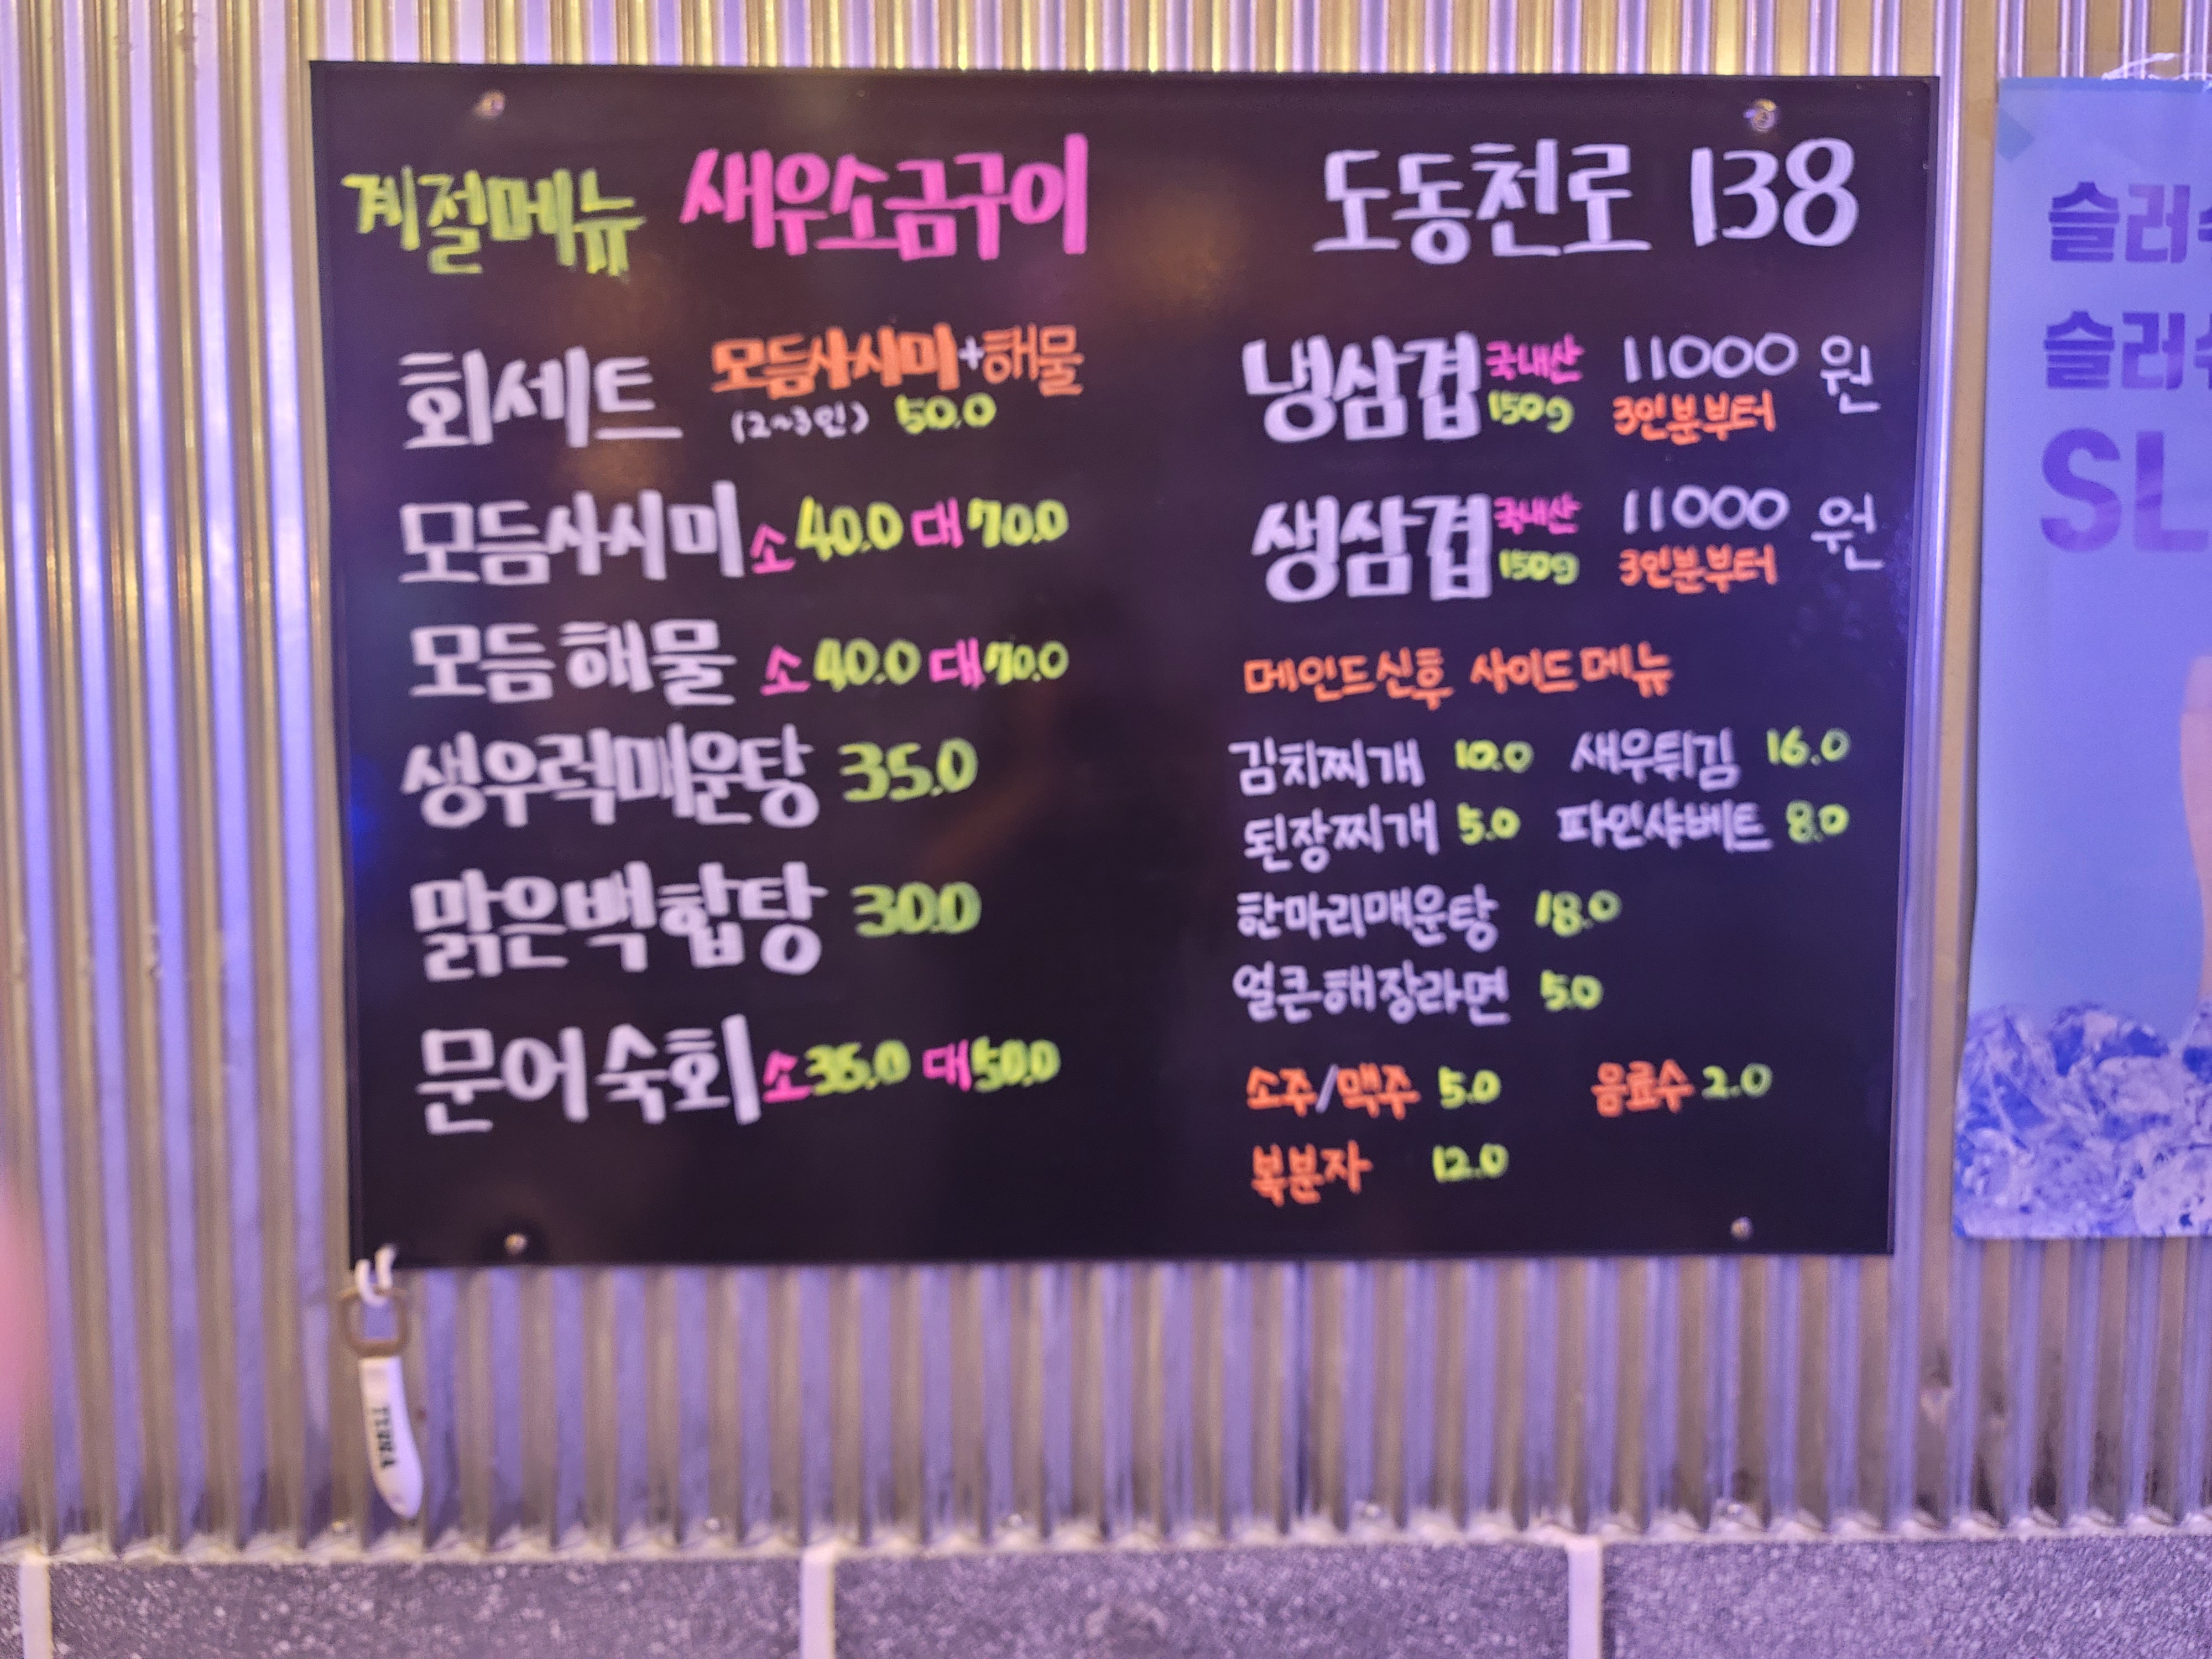 계절메뉴 새우소금구이
회세트 모듬사시미+해물
(2~3인) 50.0
모듬사시미 소 40.0 대 70.0
모듬해물 소 40.0 대 70.0
생우럭매운탕 35.0
맑은백합탕 30.0
문어숙회 소 35.0 대 50.0
도동천로 138
냉삼겹 국내산 11000 원
150g 3인분부터
생삼겹 국내산 11000 원
150g 3인분부터
메인드신후 사이드메뉴
김치찌개 10.0 새우튀김 16.0
된장찌개 5.0 파인샤베트 8.0
한마리매운탕 18.0
얼큰해장라면 5.0
소주/맥주 5.0 음료수 2.0
복분자 12.0
슬러
슬러
SL